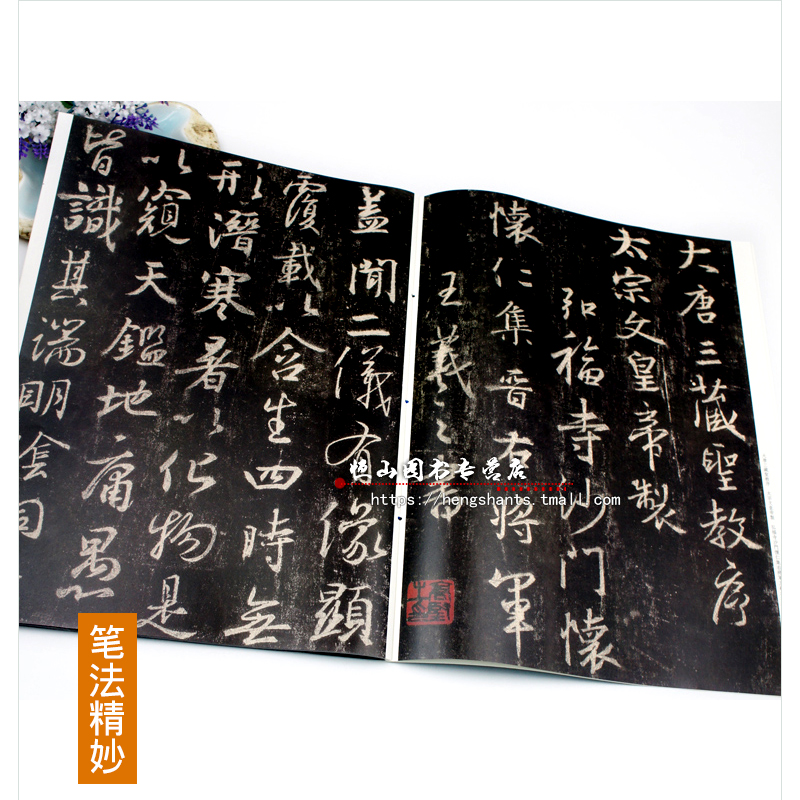 大唐三藏聖教序
太宗文皇帝製
弘福寺沙門懷
懷仁集晉右將軍
王羲之書
蓋聞二儀有像顯
覆載以含生四時無
形潛寒暑以化物是
以窺天鑑地庸愚
皆識其端明陰
恒山图书专营店
https://hengshants.tmall.com/
笔法精妙